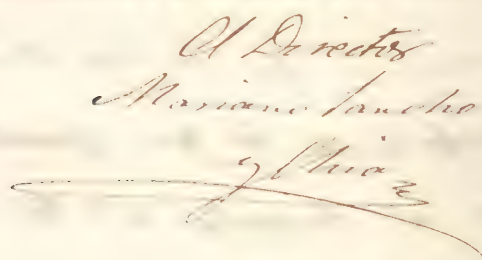 El Director
Mariano Sancho
y Chia